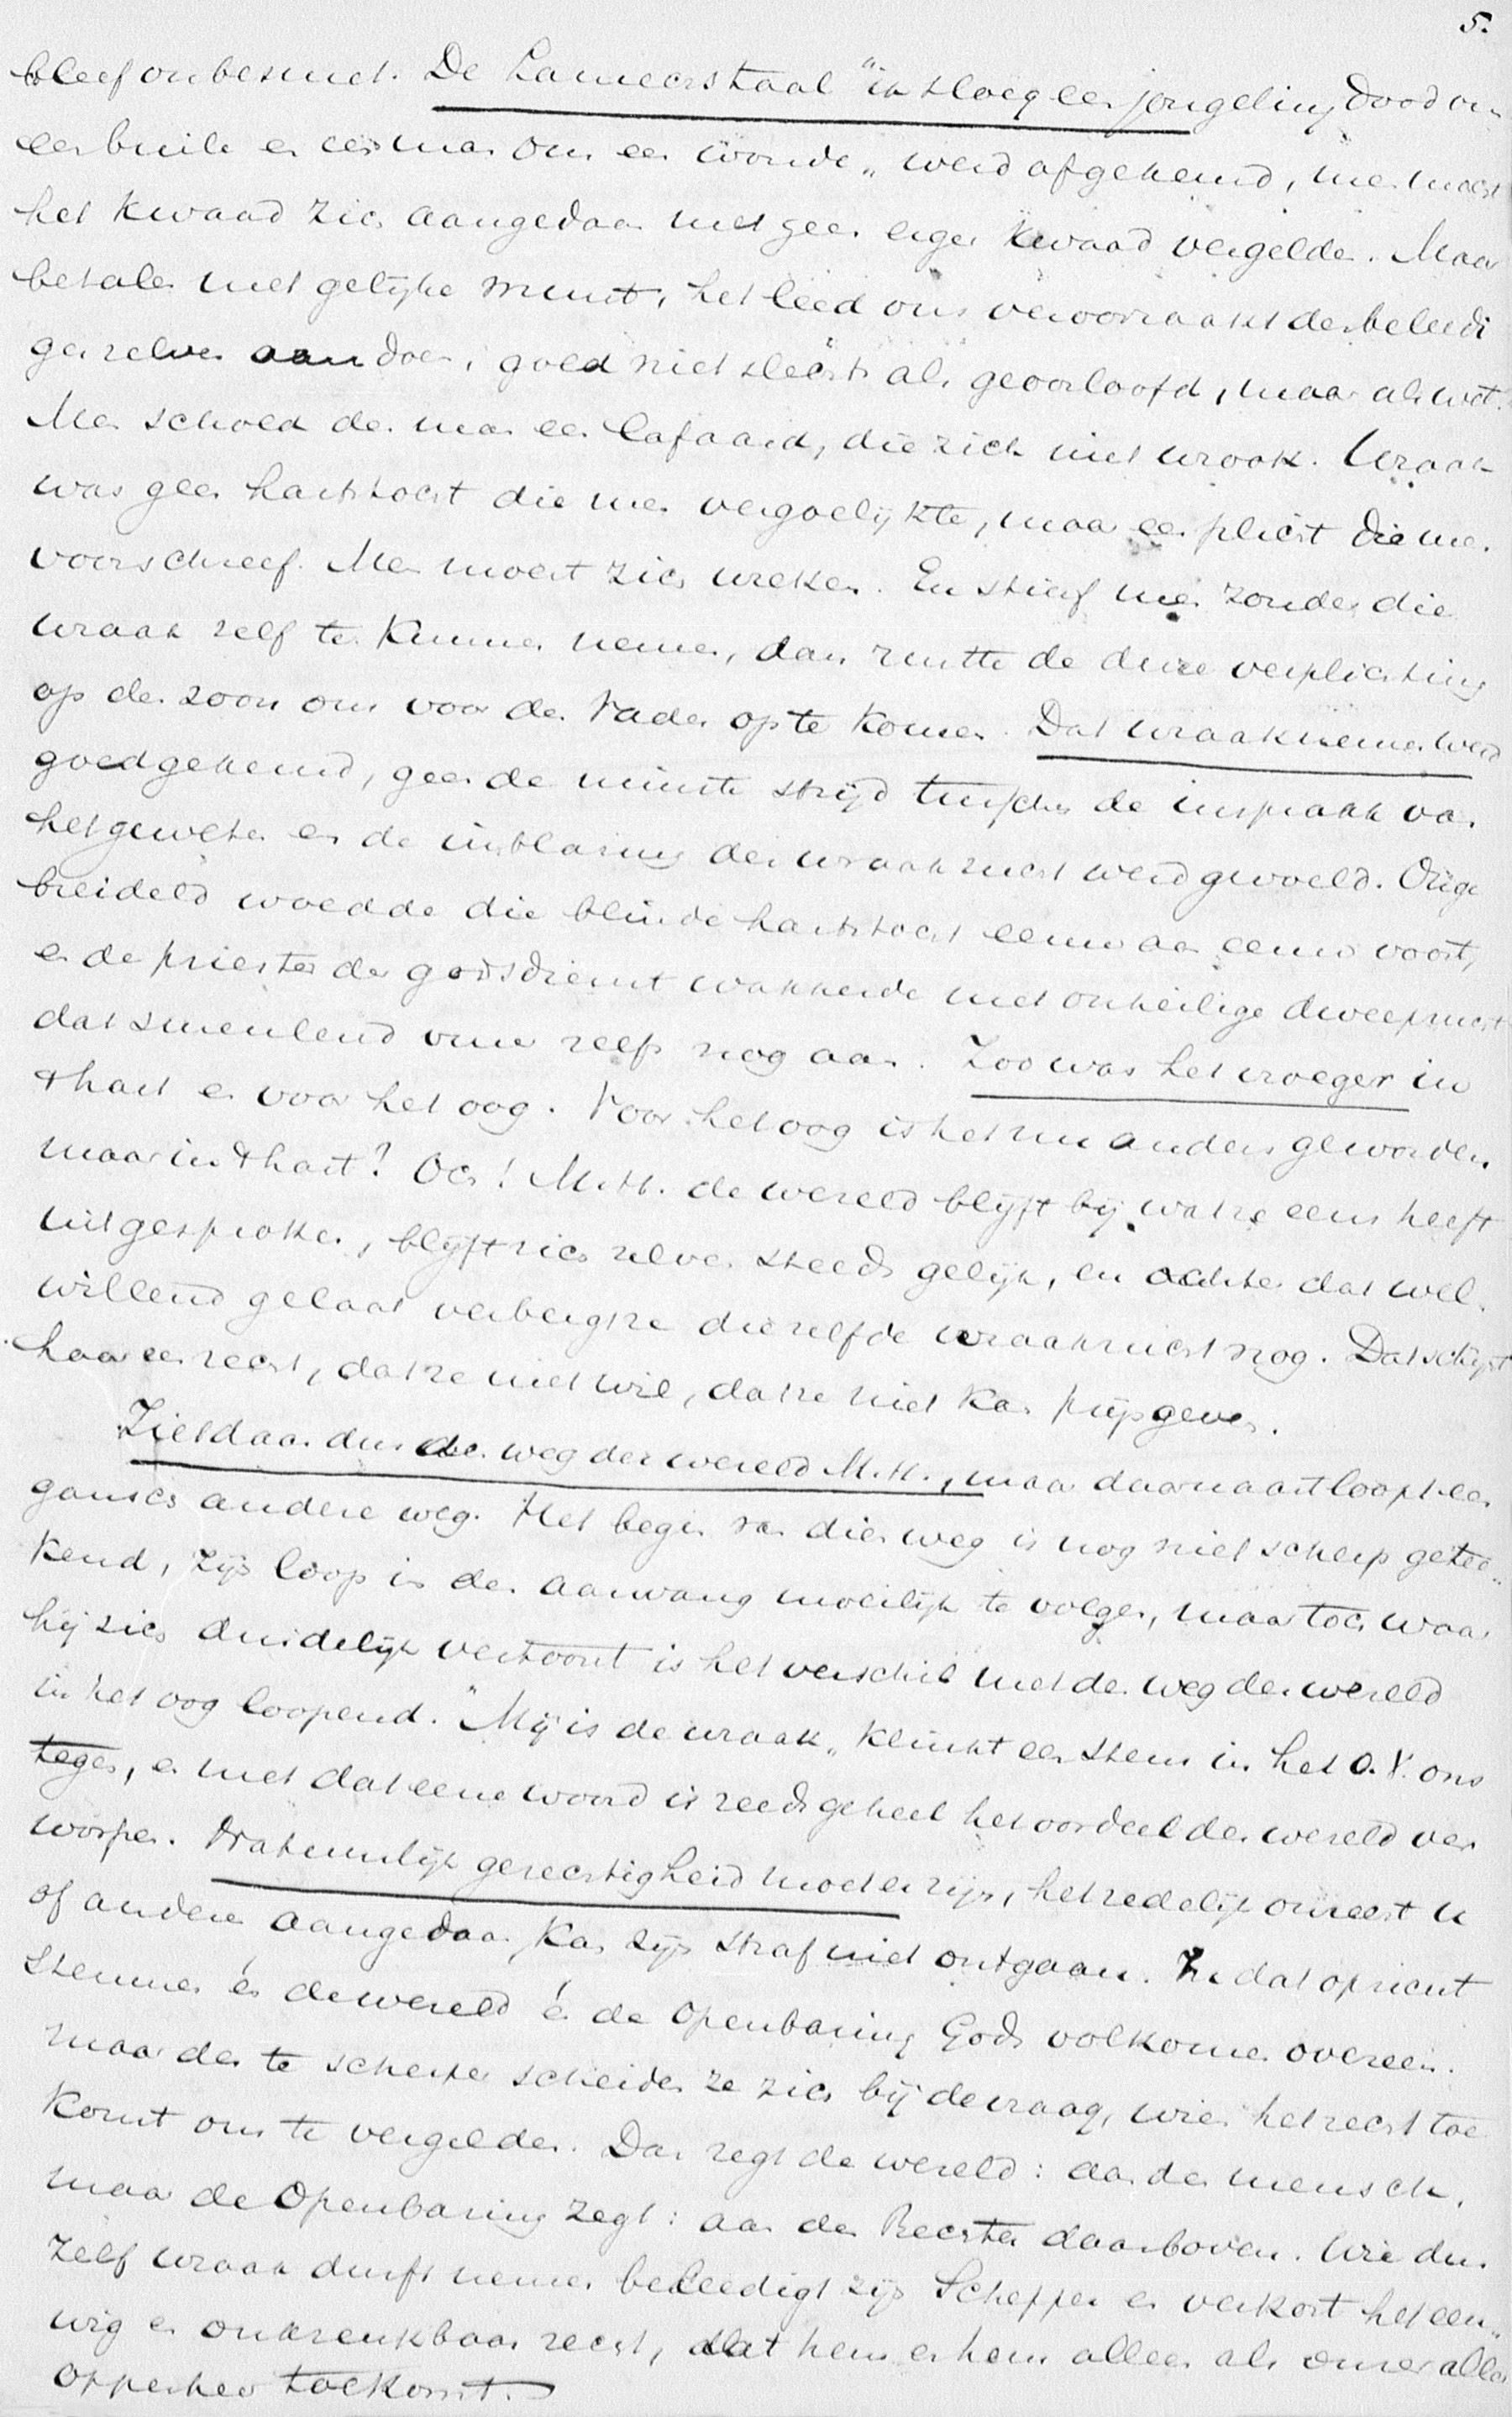 5.
bleef onbesmet. De Lamechstaal "ik sloeg een jongeling dood om
een buile en een man om een wonde„ werd afgekeurd, men moest
het kwaad zich aangedaan met geen eigen kwaad vergelden. Maar
betalen met gelijke munt, het leed ons veroorzaakt den beleedi
ger zelven aan doen, gold niet slechts als geoorloofd, maar als wet.
Men schold den man een lafaard, die zich niet wrook. Wraak
was geen hartstocht die men vergoelijkte, maar een plicht die men
voorschreef. Men moest zich wreken. En stierf men zonder die
wraak zelf te kunnen nemen, dan rustte de dure verplichting
op den zoon om voor den Vader op te komen. Dat wraaknemen werd
goedgekeurd, geen de minste strijd tusschen de inspraak van
het geweten en de inblazing der wraakzucht werd gevoeld. Onge
breideld woedde die blinde hartstocht eeuw aan eeuw voort,
en de priester der godsdienst wakkerde met onheilige dweepzucht
dat smeulend vuur zelfs nog aan. Zoo was het vroeger in
't hart en voor het oog. Voor het oog is het nu anders geworden
maar in 't hart? Och! M.H. de wereld blijft bij wat ze eens heeft
uitgesproken, blijft zich zelven steeds gelijk, en achter dat wel.
willend gelaat verbergt ze diezelfde wraakzucht nog. Dat schijnt
haar een recht, dat ze niet wil, dat ze niet kan prijsgeven.
Ziet daar dus den weg der wereld M.H., maar daarnaast loopt een
gansch andere weg. Het begin van dien weg is nog niet scherp getee„
kend, zijn loop in den aanvang moeilijk te volgen, maar toch waar
hij zich duidelijk vertoont is het verschil met den weg der wereld
in het oog loopend. "Mij is de wraak„ klinkt een stem in het O.V. ons
tegen, en met dat eene woord is reeds geheel het oordeel der wereld ver
worpen. Natuurlijk gerechtigheid moet er zijn, het zedelijk onrecht u
of anderen aangedaan kan zijn straf niet ontgaan. In dat opzicht
stemmen én de wereld én de Openbaring Gods volkomen overeen.
maar des te scherper scheiden ze zich bij de vraag, wien het recht toe
komt om te vergelden. Dan zegt de wereld: aan den mensch,
maar de Openbaring zegt: aan den Rechter daarboven. Wie dus
zelf wraak durft nemen beleedigt zijn Schepper en verkort het eeu„
wig en onkrenkbaar recht, dat hem en hem alleen als onser aller
Opperheer toekomt.